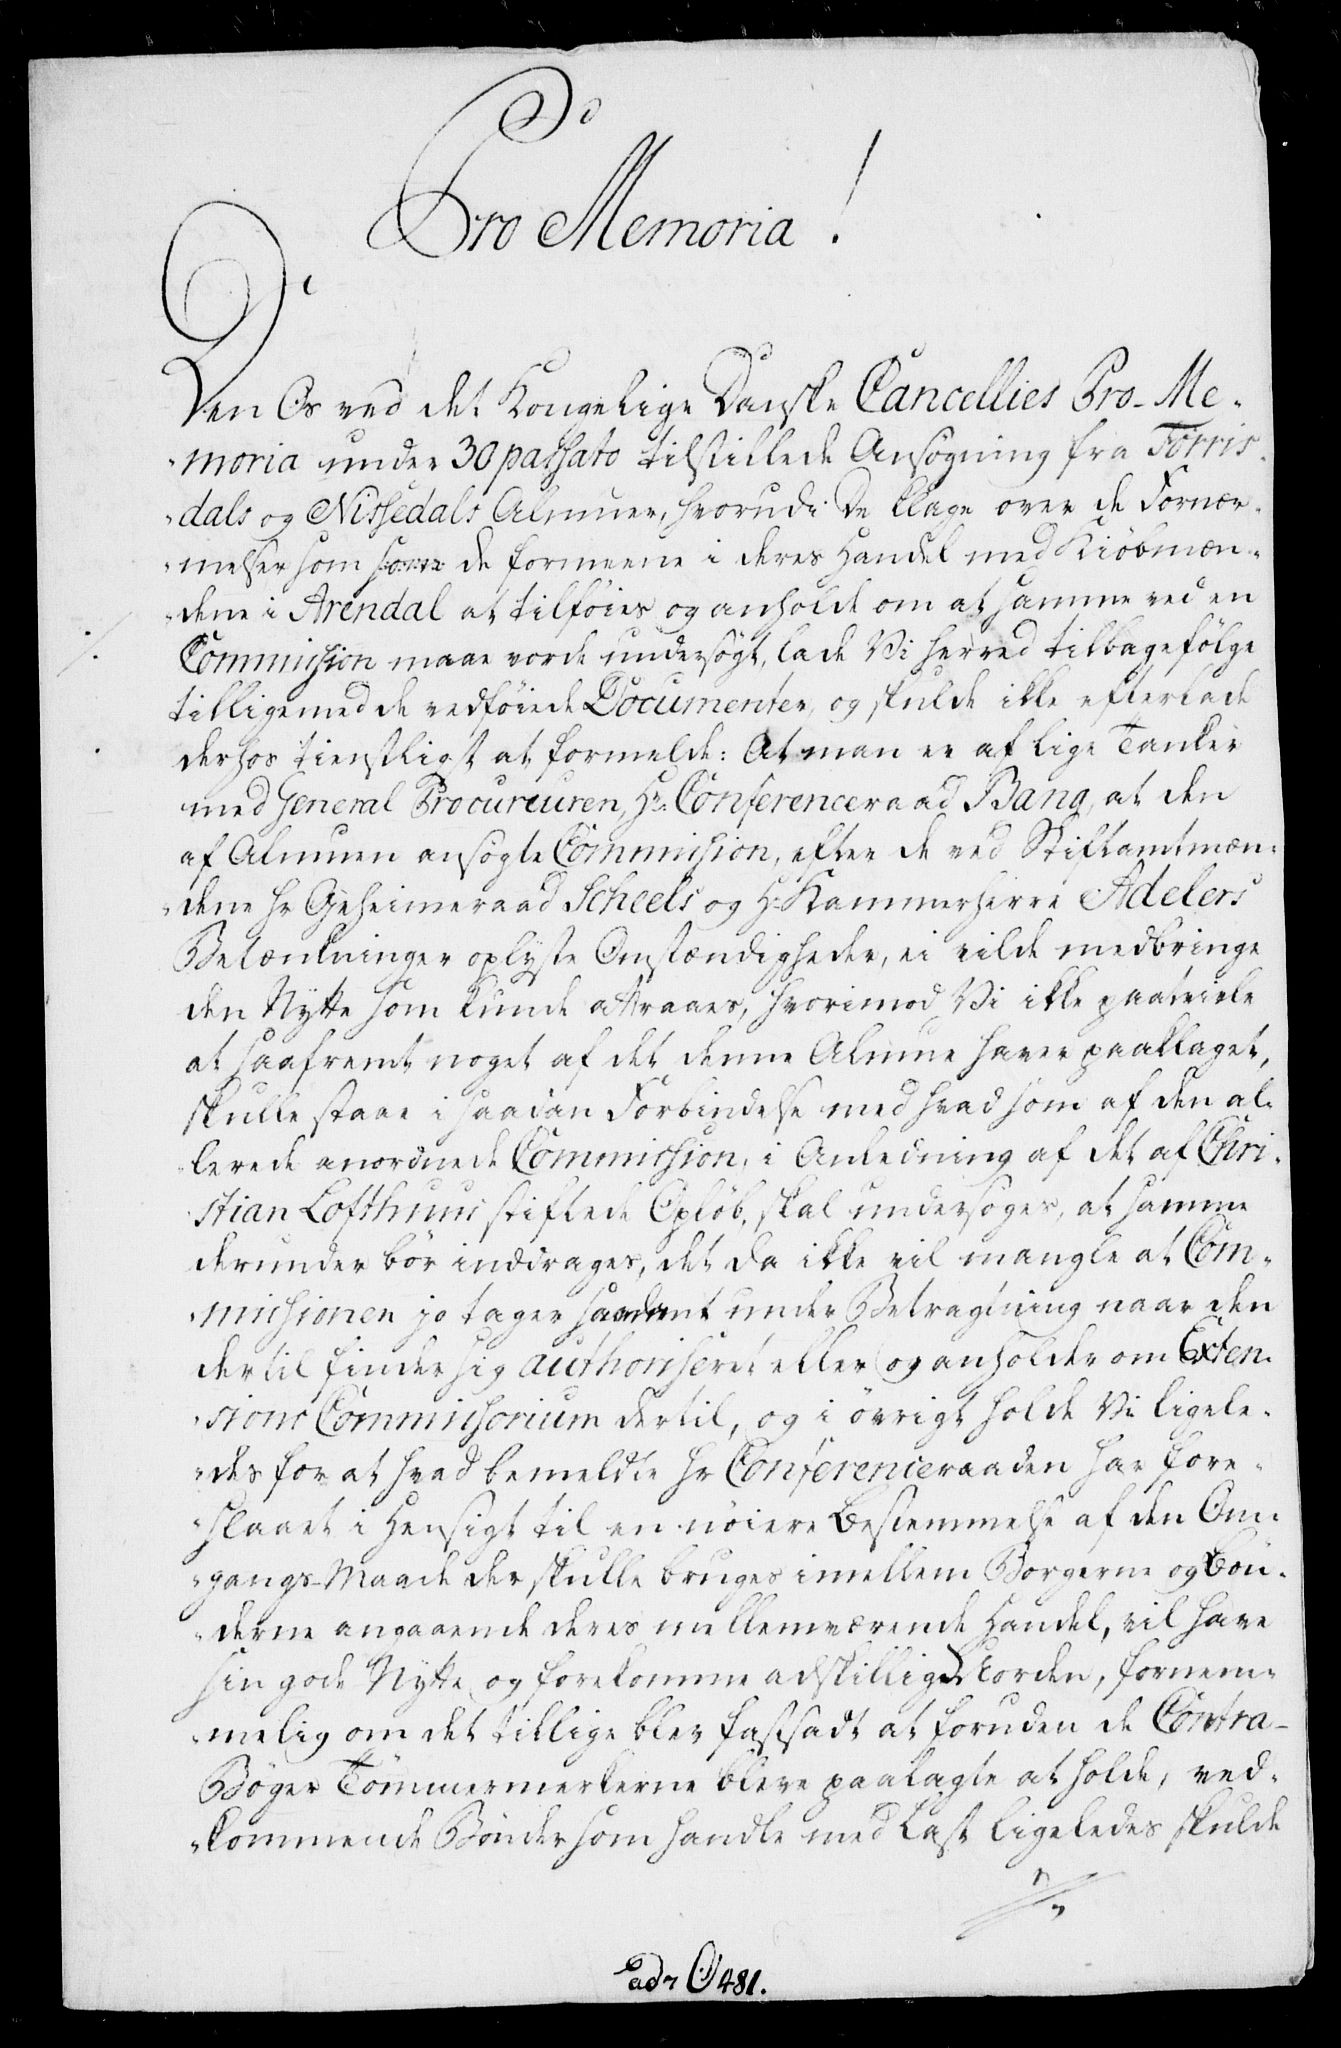 Pro Memoria!
Den Os ved det Kongelige Danske Cancellies Pro-Me-
moria under 30 passato tilstillede Ansøgning fra Torris-
dals og Nissedals Almuer, hvorudi De klage over de Fornær-
melser som de formeene i deres Handel med Kiöbmæn-
dene i Arendal at tilföies og anholde om at samme ved en
Commission maae vorde undersögt, lade Vi herved tilbagefölge
tilligemed de vedföiede Documenter, og skulde ikke efterlade
derhos tienstligst at formelde: At man er af lige Tanker
med General Procureuren, Hr: Conferenceraad Bang, at den
af Almuen ansögte Commission, efter de ved Stiftamtmæn-
dene Hr Geheimeraad Scheels og Hr Kammerherre Adelers
Betænkninger oplyste Omstændigheder, ei vilde medbringe
den Nytte som kunde attraaes, hvorimod Vi ikke paatvivle
at saafremt noget af det denne Almue haver paaklaget,
skulle staae i saadan Forbindelse med hvad som af den al-
lerede anordnede Commission, i Anledning af det af Chri-
stian Lofthuus stiftede Oplöb, skal undersöges, at samme
derunder bör inddrages, det da ikke vil mangle at Com-
missionen jo tager saadant under Betragtning naar den
dertil finder sig authoriseret eller og anholder om Exten-
sions Commissorium dertil, og i övrigt holde Vi ligele-
des for at hvad bemeldte Hr Conferenceraaden har fore-
slaaet i Hensigt til en nöiere Bestemmelse af den Om-
gangs-Maade der skulle bruges imellem Borgerne og Bön-
derne angaaende deres mellemværende Handel, vil have
sin gode Nytte og forekomme adskillig Uorden, fornem-
melig om det tillige blev fastsadt at foruden de Contra-
Böger Tömmermerkerne bleve paalagte at holde, ved-
kommende Bönder som handle med Last ligeledes skulde
ad O 481.